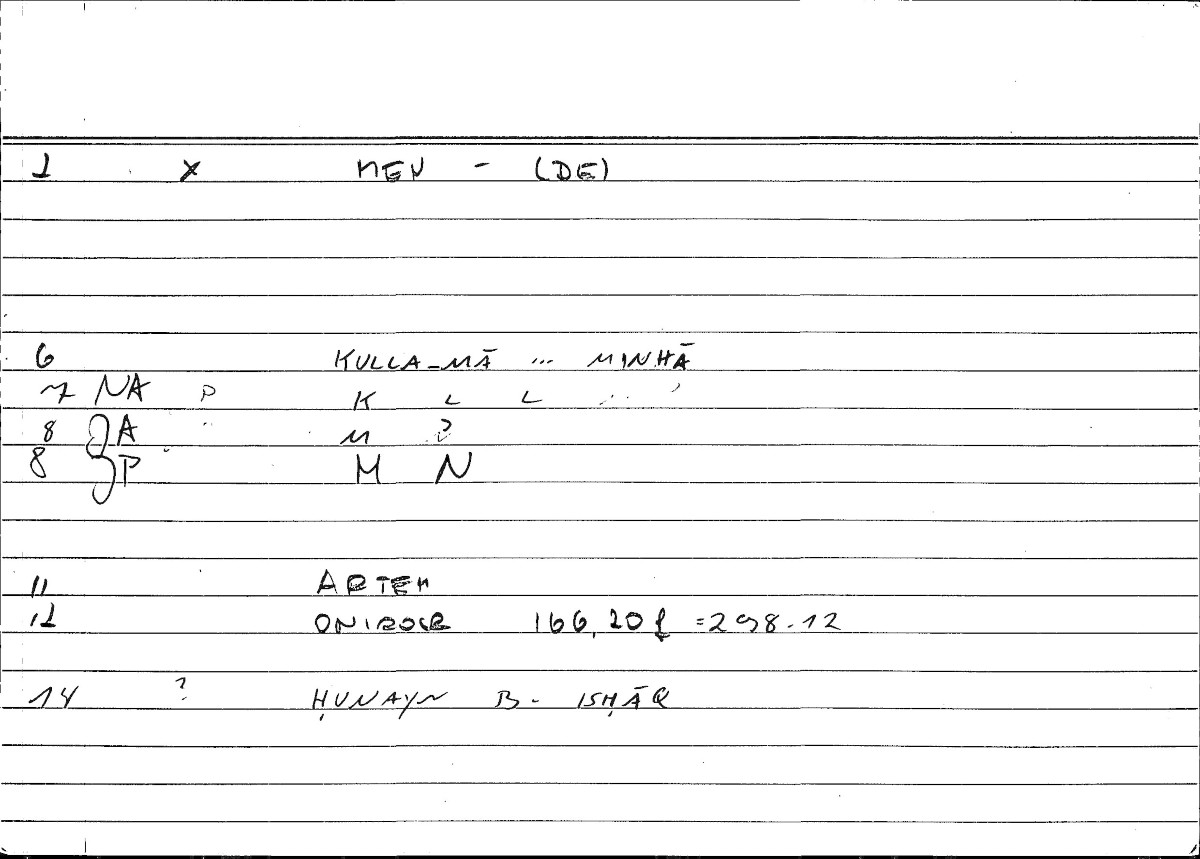 1 x MEN - (DE)
6 KULLA-MĀ ... MINHĀ
7 NA P K L L ...
8 A " M
8 P M N
11 ARTEM
12 ONIROCR 166,20 f = 298.12
14 ? ḤUNAYN B. ISḤĀQ